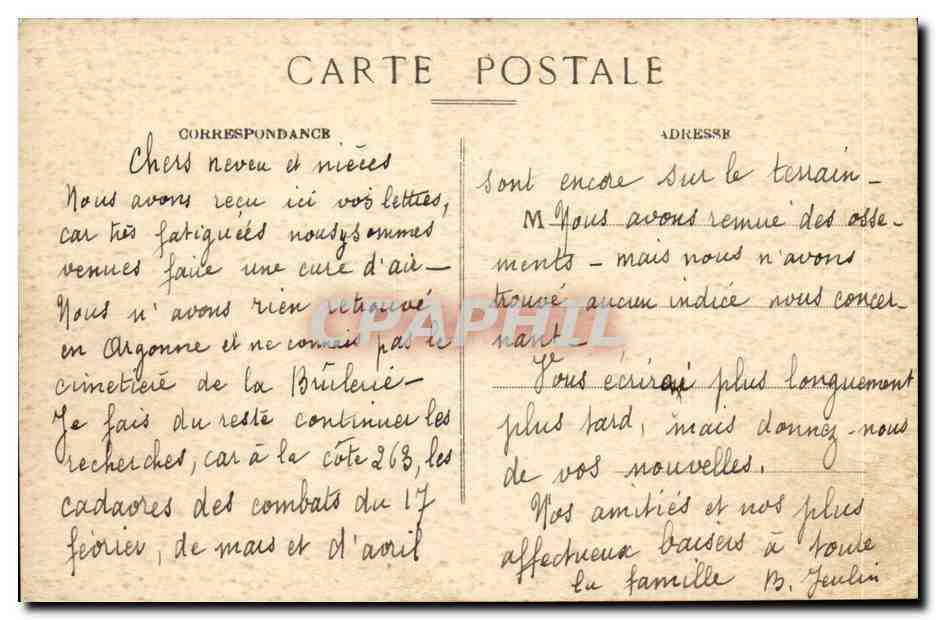 CARTE POSTALE
CORRESPONDANCE
Chers neveu et nièces
Nous avons reçu ici vos lettres,
car très fatiguées nous y sommes
venues faire une cure d'air —
Nous n'avons rien retrouvé
en Argonne et ne connais pas le
cimetière de la Brûlerie —
Je fais du reste continuer les
recherches, car à la côte 263, les
cadavres des combats du 17
février, de mars et d'avril
ADRESSE
sont encore sur le terrain —
M Nous avons remué des osse-
ments — mais nous n'avons
trouvé aucun indice nous concer-
nant —
Je
Vous écrirai plus longuement
plus tard, mais donnez-nous
de vos nouvelles.
Nos amitiés et nos plus
affectueux baisers à toute
la famille B. Jeulin
CPAPHIL